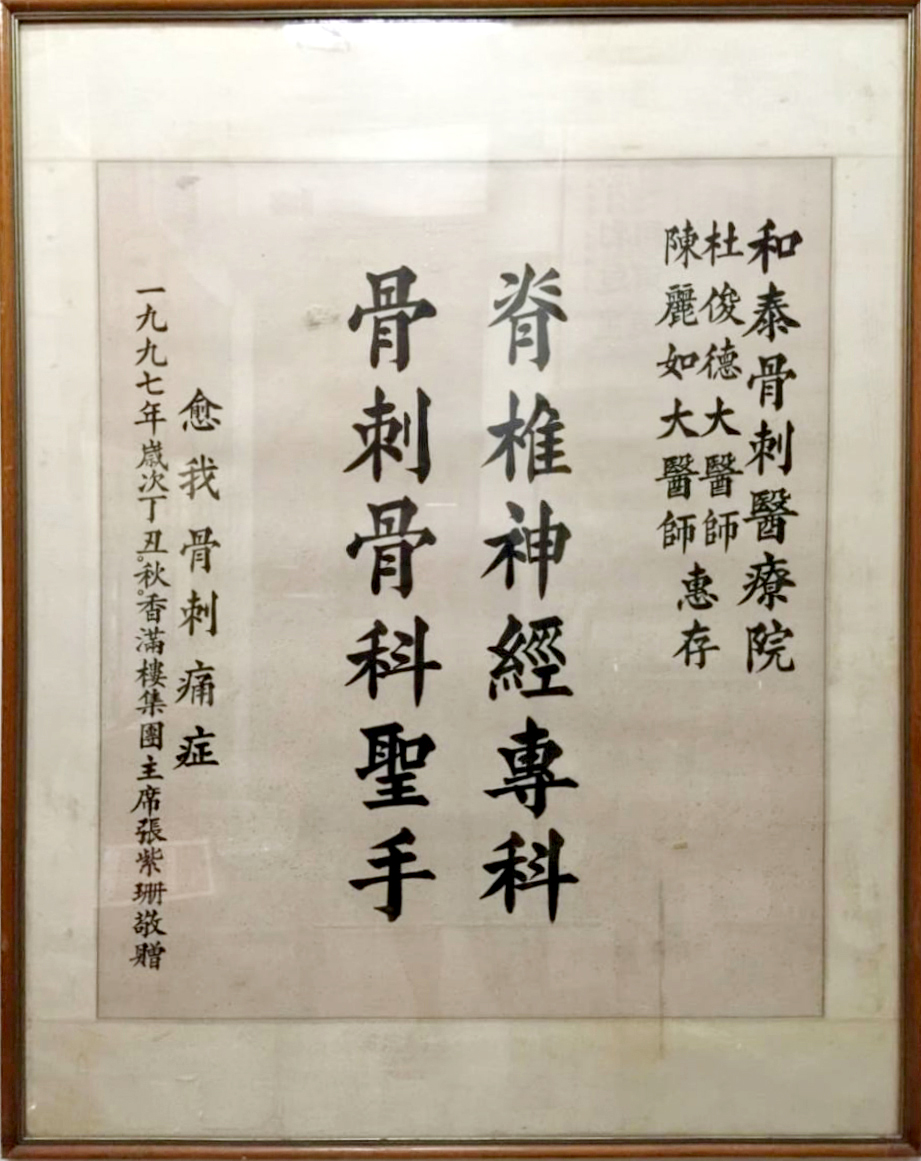 和泰骨刺醫療院
杜俊德大醫師
陳麗如大醫師
惠存
脊椎神經專科
骨刺骨科聖手
愈我骨刺痛症
一九九七年歲次丁丑。秋。香滿樓集團主席張紫珊敬贈